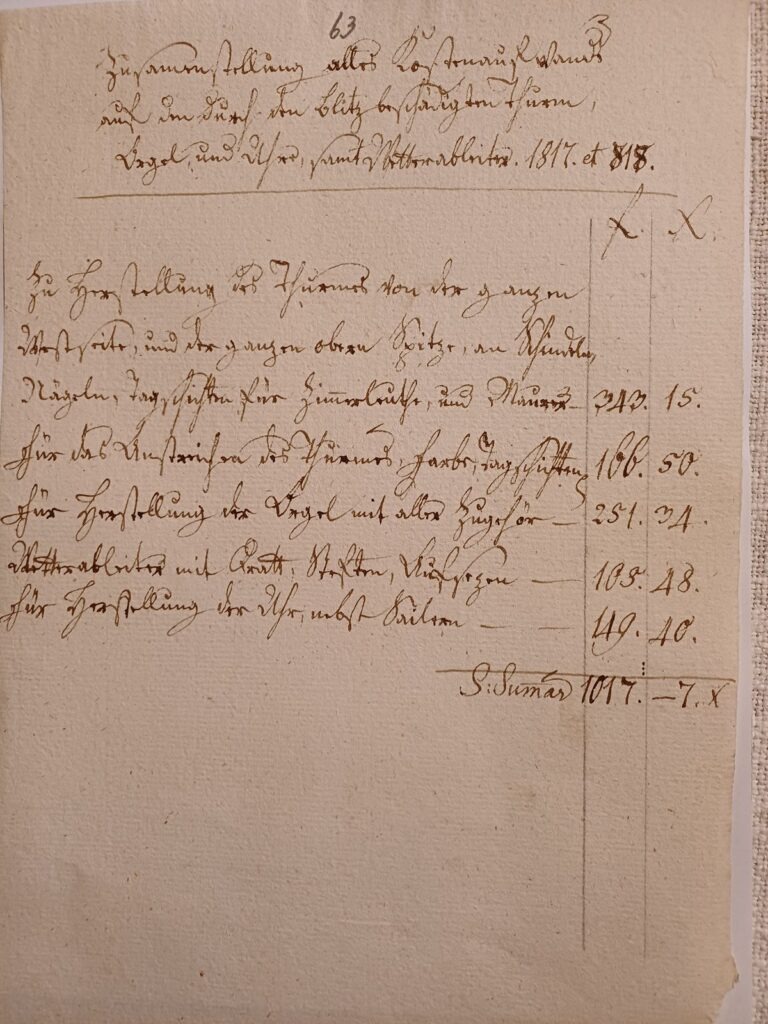 63
3
Zusamenstellung alles Kostenaufwands
auf den durch den Blitz beschädigten Thurm,
Orgel, und Uhre, samt Wetterableiter. 1817. et 818.
f. X.
Zu Herstellung des Thurmes von der ganzen
Westseite, und der ganzen obern Spitze, an Schindeln,
Nägeln, Tagschichten für Zimmerleuthe, und Maurer – 343. 15.
Für das Anstreichen des Thurmes, Farbe, Tagschichten 166. 50.
Für Herstellung der Orgel mit aller Zugehör – 251. 34.
Wetterableiter mit Dratt, Steften, Aufsezen — 105. 48.
Für Herstellung der Uhr, nebst Sailern — — 149. 40.
S: Sumār 1017. – 7. X